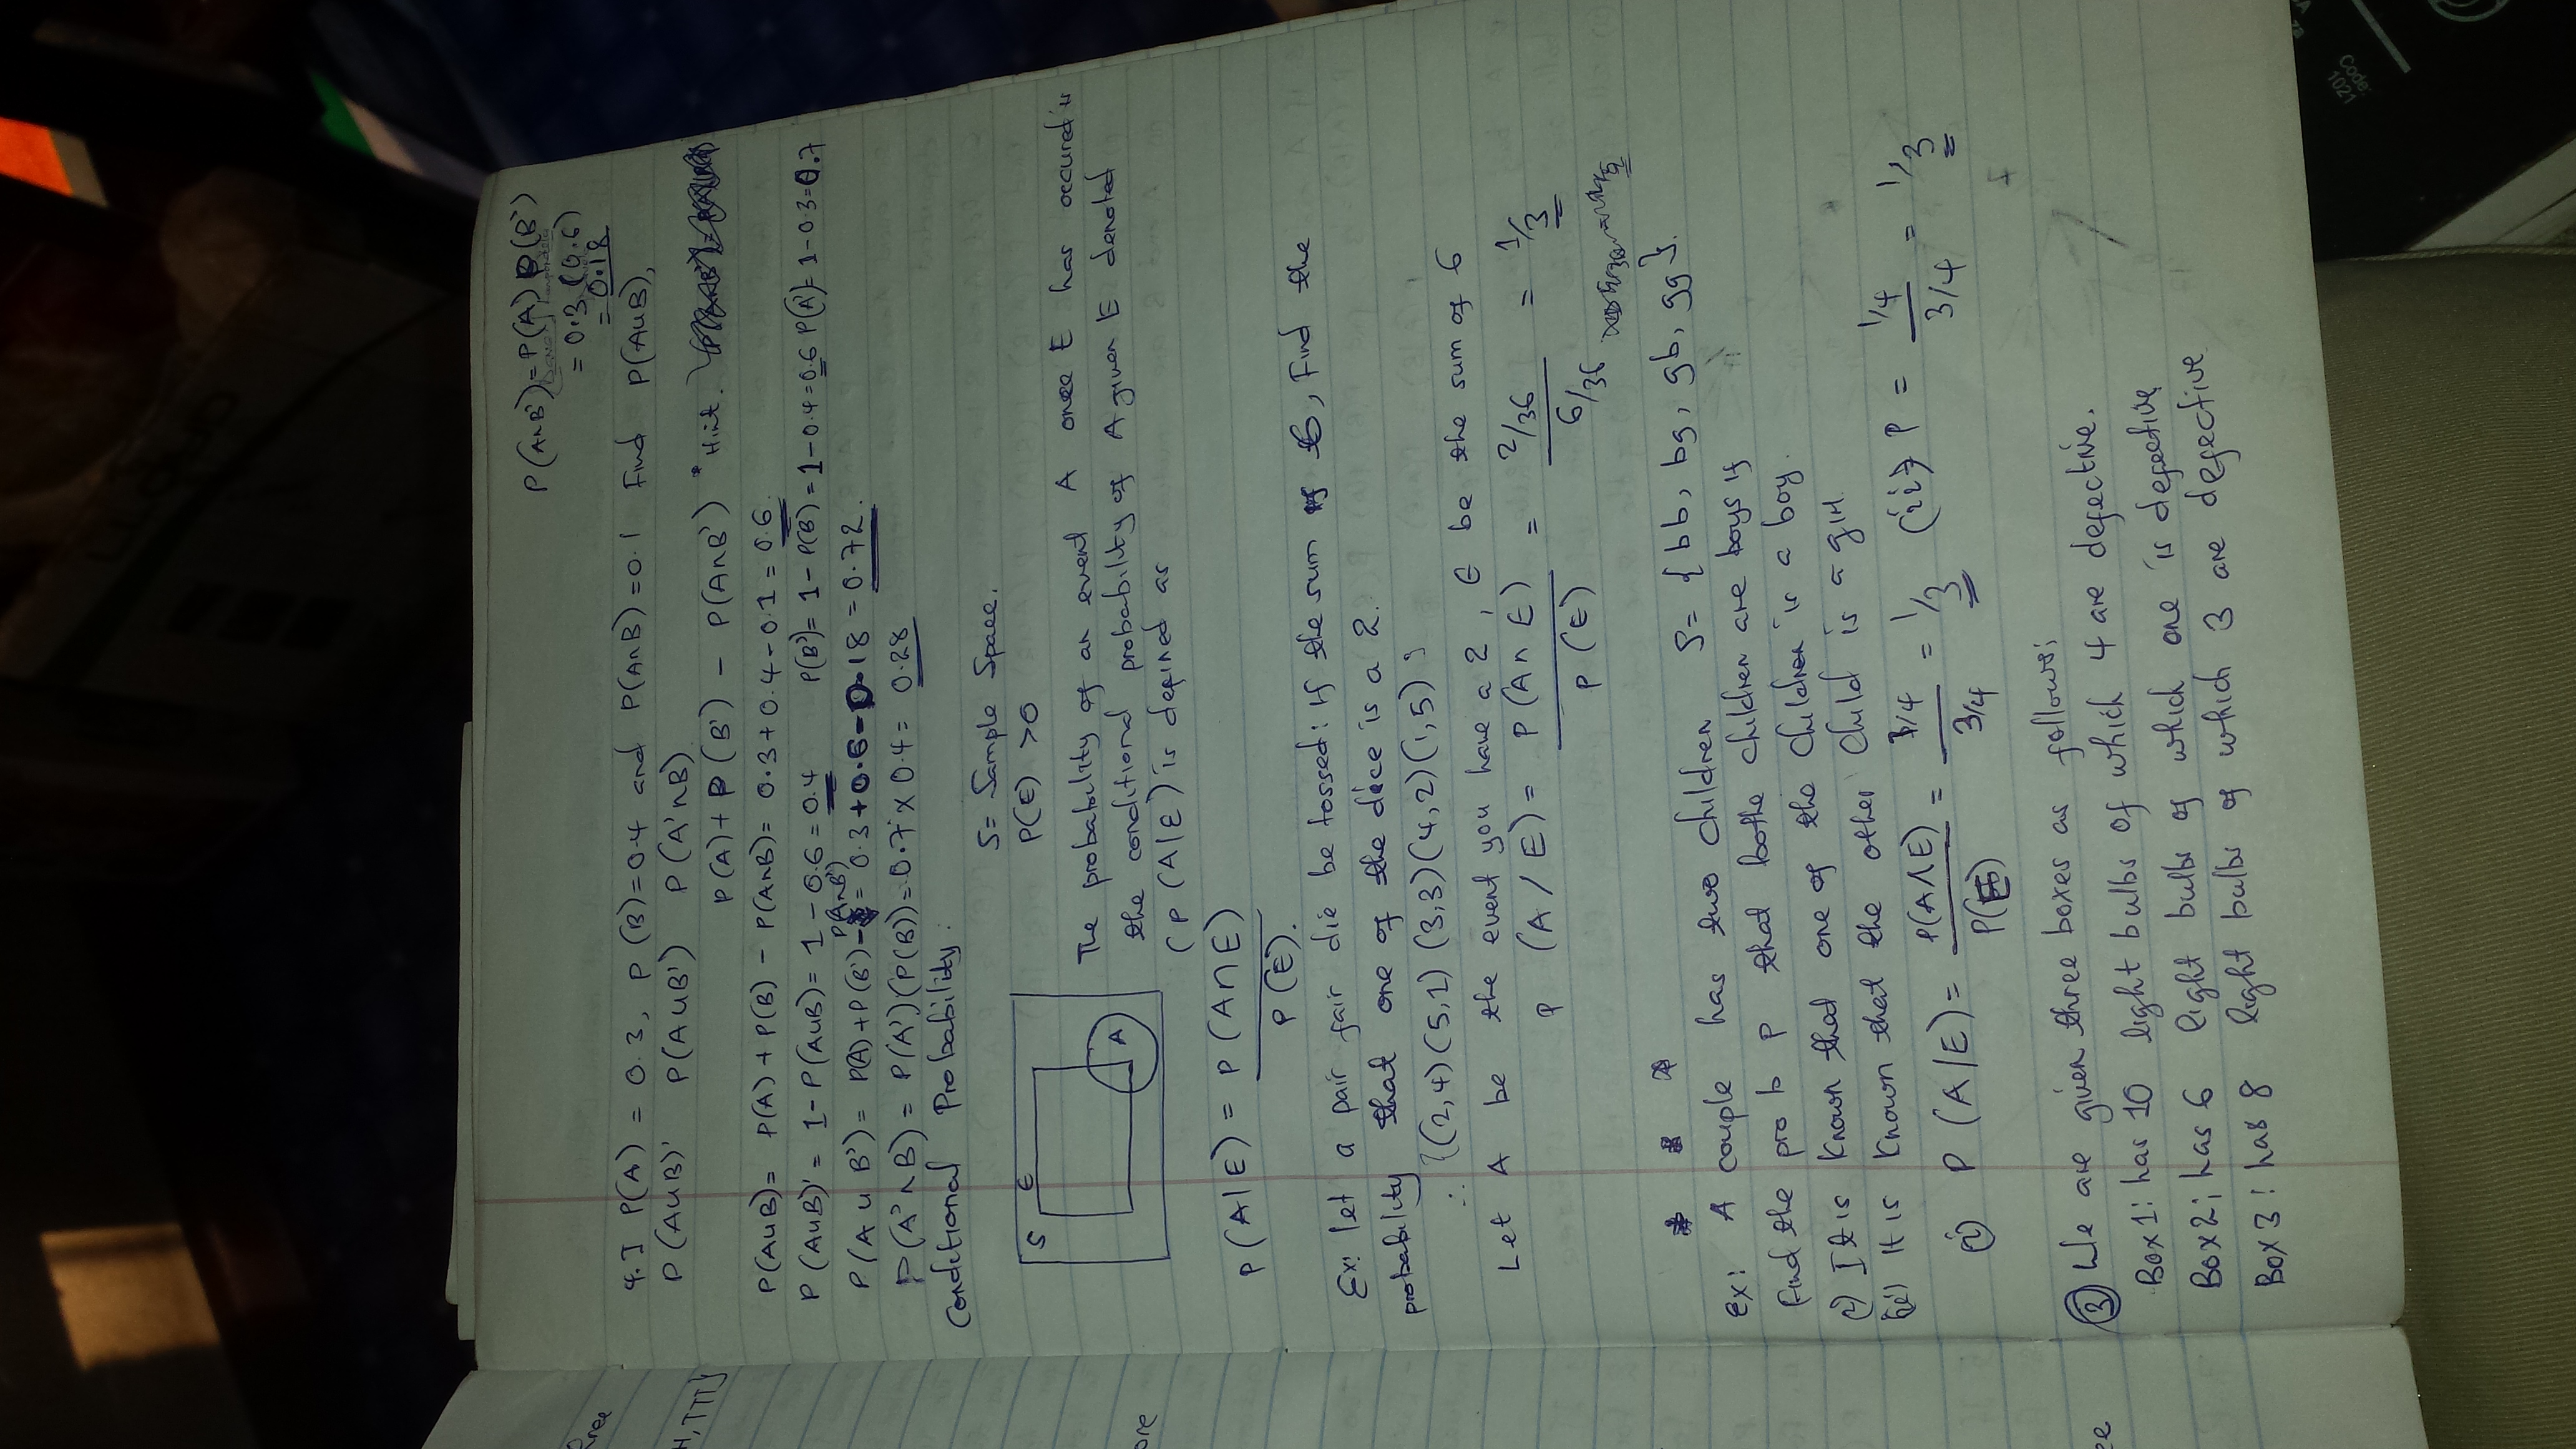 P(A∩B')=P(A)P(B')
= 0.3 (0.6)
= 0.18
4.] P(A) = 0.3, P(B)=0.4 and P(A∩B)=0.1 Find P(A∪B),
P(A∪B)' P(A∪B') P(A'∩B)
P(A)+P(B') - P(A∩B') * Hint.
P(A∪B)= P(A)+P(B) - P(A∩B)= 0.3+0.4-0.1=0.6.
P(A∪B)'= 1-P(A∪B)= 1-0.6=0.4 P(B')=1-P(B)=1-0.4=0.6 P(A')=1-0.3=0.7
P(A∪B')= P(A)+P(B')-P(A∩B')= 0.3+0.6-0.18=0.72.
P(A'∩B) = P(A')(P(B))=0.7×0.4=0.28
Conditional Probability:
S= Sample Space.
P(E) >0
S E A
The probability of an event A once E has occured in
the conditional probability of A given E denoted
(P(A|E) is defined as
P(A|E) = P(A∩E)
P(E).
Ex: let a pair fair die be tossed: if the sum is 6, Find the
probability that one of the dice is a 2.
∴ {(2,4)(5,1)(3,3)(4,2)(1,5)}
Let A be the event you have a 2, E be the sum of 6
P(A/E)= P(A∩E) = 2/36 = 1/3
P(E) 6/36
Ex: A couple has two children S={bb, bg, gb, gg}.
Find the prob P that bothe children are boys if
(i) It is known that one of the children is a boy.
(ii) It is known that the other child is a girl.
(i) P(A|E)= P(A∩E) = 3/4 = 1/3 (ii) P = 1/4 = 1/3
P(E) 3/4 3/4
(3) We are given three boxes as follows;
Box 1: has 10 light bulbs of which 4 are defective.
Box 2: has 6 light bulbs of which one is defective
Box 3: has 8 light bulbs of which 3 are defective
H,TTT]
ore
Code:
1021